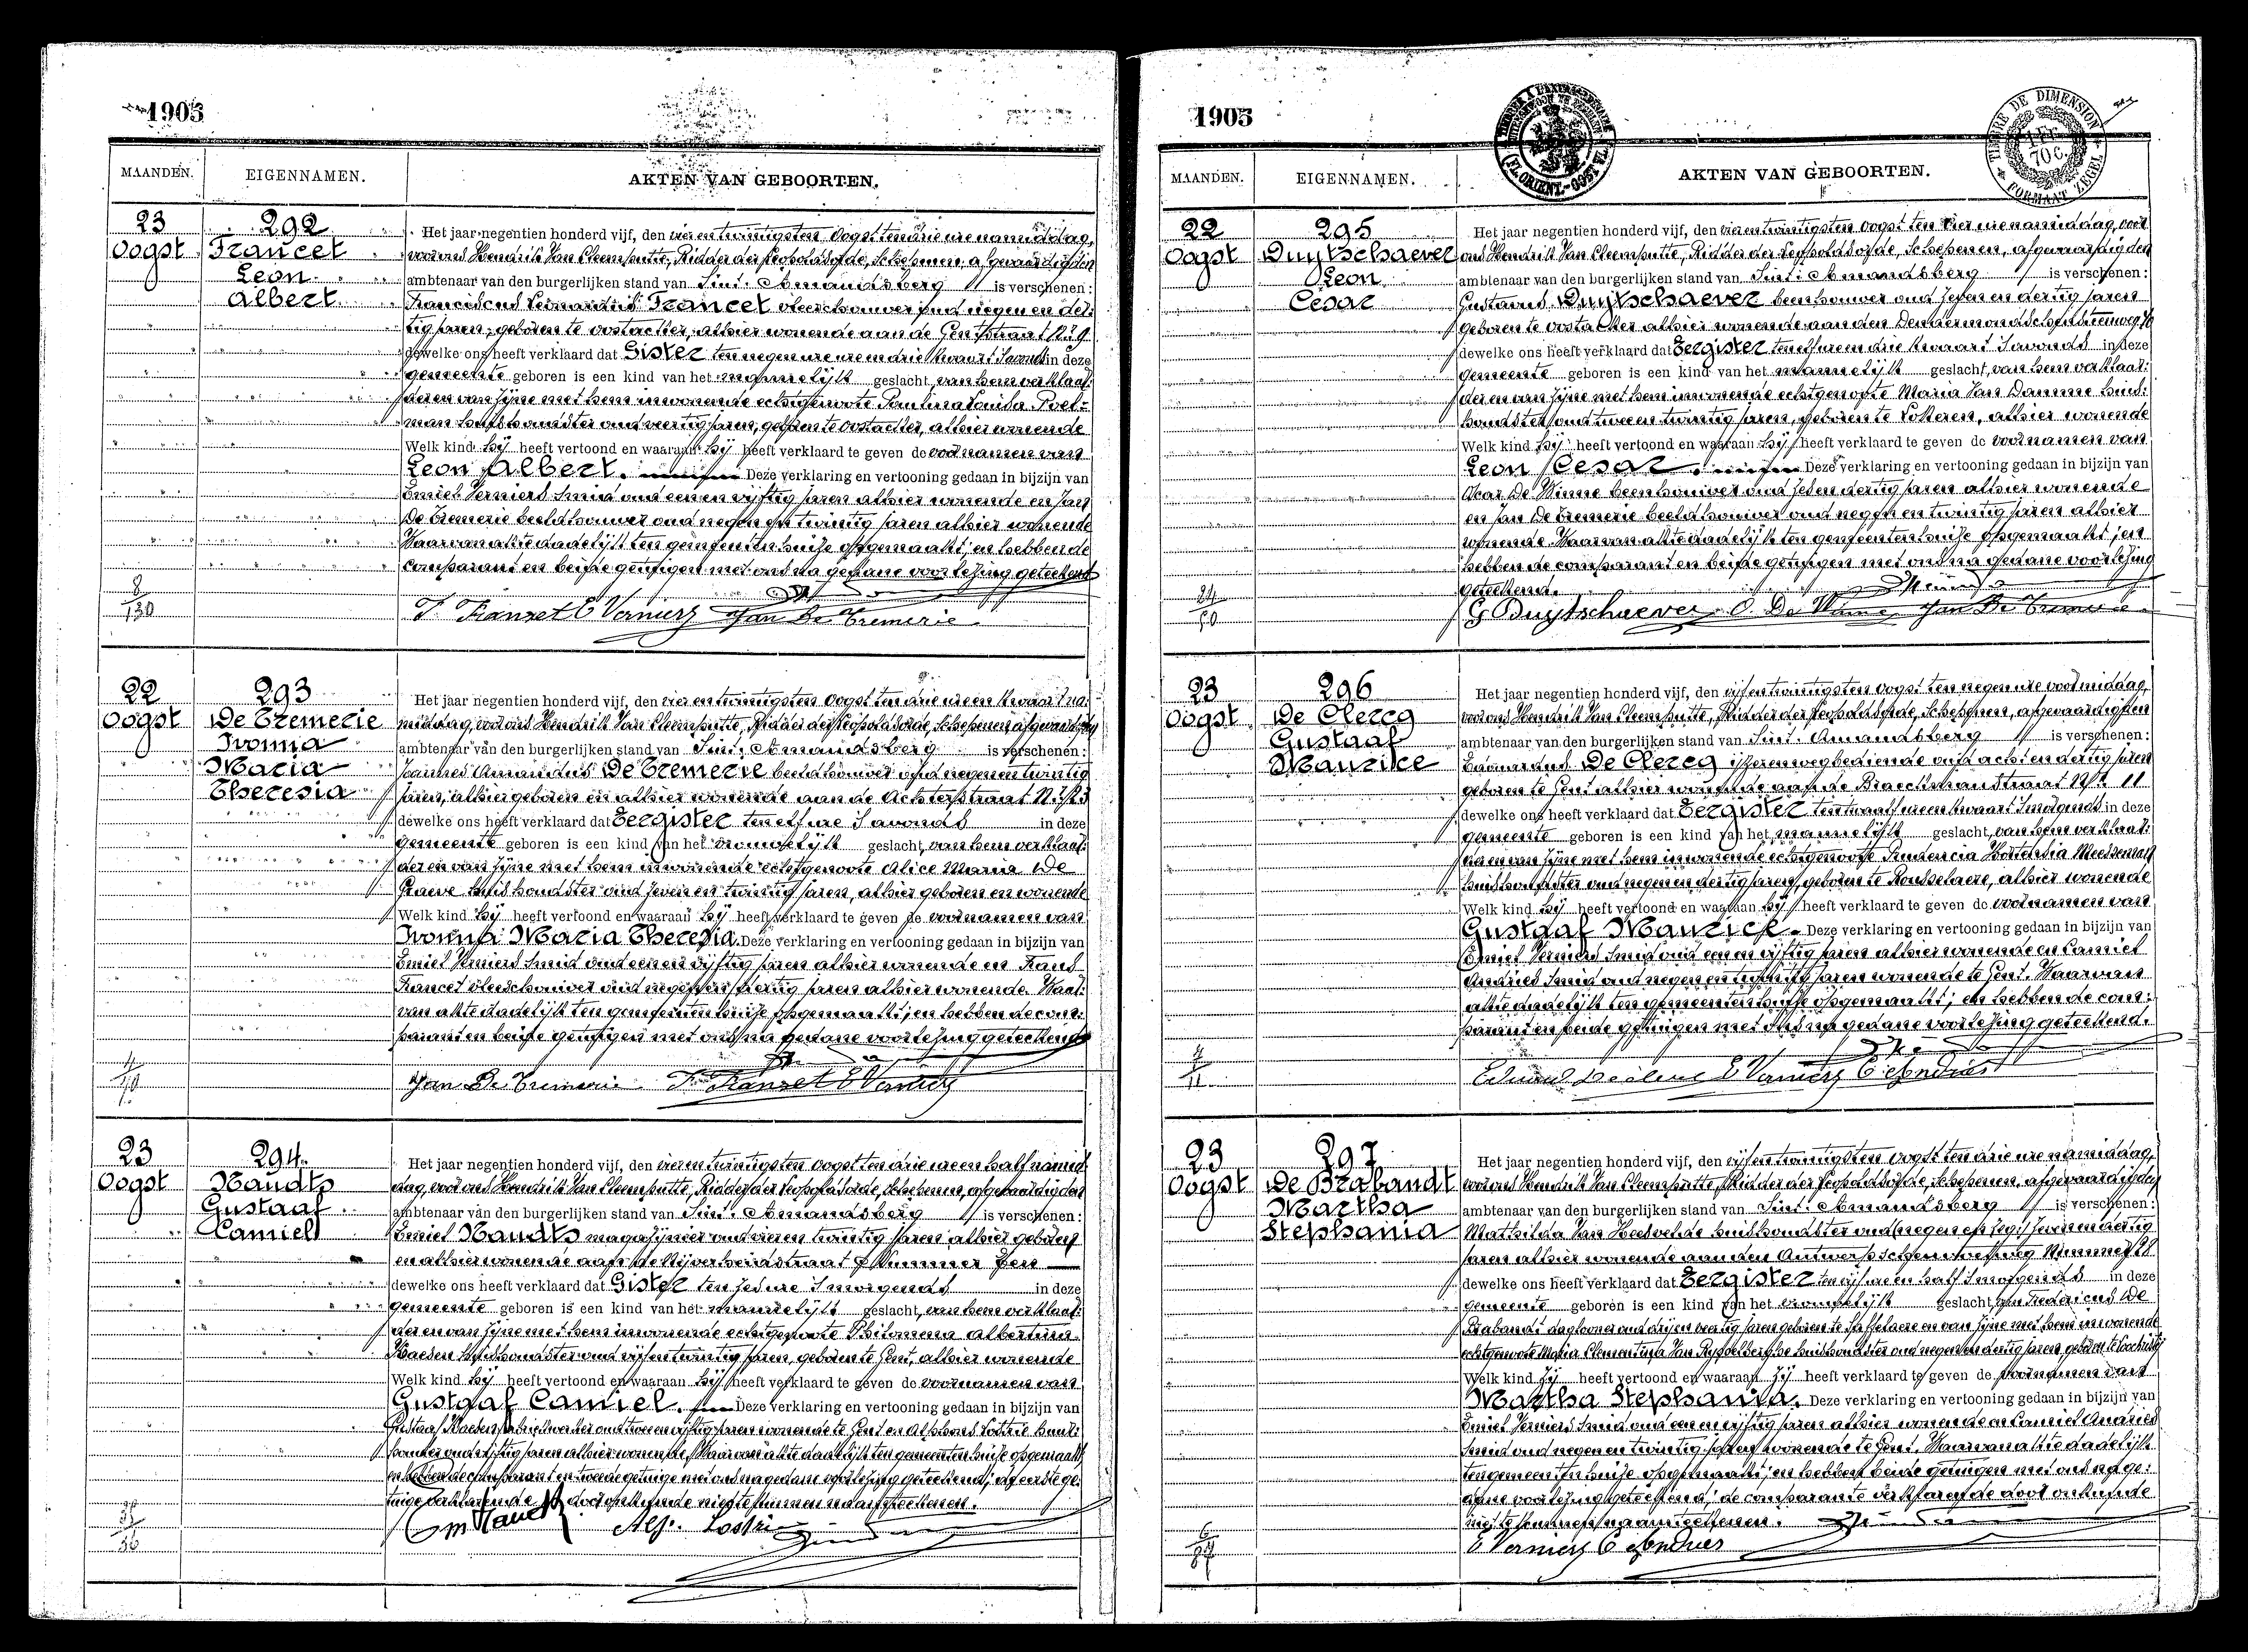 1905
MAANDEN.
EIGENNAMEN.
AKTEN VAN GEBOORTEN.
23
Oogst
292
Francet
Leon
Albert
Het jaar negentien honderd vijf, den vier en twintigsten Oogst ten drie ure namiddag,
voor ons Hendrik Van Cleemputte, Ridder der Leopoldsorde, Schepenen, afgevaardigden
ambtenaar van den burgerlijken stand van Sint Amandsberg is verschenen:
Franciscus Leonardus Francet vleeschouwer oud negen en der-
tig jaren, geboren te Oostacker, alhier wonende aan de Gentstraat N.º 9
dewelke ons heeft verklaard dat Gister ten negen ure en drie kwaart s'avonds in deze
gemeente geboren is een kind van het mannelijk geslacht, van hem verklaar-
der en van zijne met hem inwonende echtgenoote Paulina Louisa Poel-
man huishoudster oud veertig jaren, geboren te Oostacker, alhier wonende
Welk kind hij heeft vertoond en waaraan hij heeft verklaard te geven de voornamen van
Leon Albert. Deze verklaring en vertooning gedaan in bijzijn van
Emiel Verniers smid oud een en vijftig jaren alhier wonende en Jan
De Tremerie beeldhouwer oud negen en twintig jaren alhier wonende
Waarvan akte dadelijk ten gemeentenhuize opgemaakt; en hebben de
comparant en beide getuigen met ons na gedane voorlezing geteekend
8
130
F. Franset E Verniers Jan De Tremerie
22
Oogst
293
De Tremerie
Ivonna
Maria
Theresia
Het jaar negentien honderd vijf, den vier en twintigsten Oogst ten drie ure en kwaart na-
middag, voor ons Hendrik Van Cleemputte, Ridder der Leopoldsorde, Schepenen, afgevaardigden
ambtenaar van den burgerlijken stand van Sint Amandsberg is verschenen:
Joannes Amandus De Tremerie beeldhouwer oud negen en twintig
jaren, alhier geboren en alhier wonende aan de Achterstraat N.º
dewelke ons heeft verklaard dat Eergister ten elf ure s'avonds in deze
gemeente geboren is een kind van het vrouwelijk geslacht, van hem verklaar-
der en van zijne met hem inwonende echtgenoote Alice Maria De
Graeve huishoudster oud zeven en twintig jaren, alhier geboren en wonende
Welk kind hij heeft vertoond en waaraan hij heeft verklaard te geven de voornamen van
Ivonna Maria Theresia. Deze verklaring en vertooning gedaan in bijzijn van
Emiel Verniers smid oud een en vijftig jaren alhier wonende en Frans
Francet vleeschouwer oud negen en dertig jaren alhier wonende. Waar-
van akte dadelijk ten gemeentenhuize opgemaakt; en hebben de com-
parant en beide getuigen met ons na gedane voorlezing geteekend
Jan De Tremerie F. Franset E Verniers
23
Oogst
294
Naudts
Gustaaf
Camiel
Het jaar negentien honderd vijf, den vier en twintigsten Oogst ten drie ure en half namid-
dag, voor ons Hendrik Van Cleemputte, Ridder der Leopoldsorde, Schepenen, afgevaardigden
ambtenaar van den burgerlijken stand van Sint Amandsberg is verschenen:
Emiel Naudts magazijnier oud vier en twintig jaren alhier geboren
en alhier wonende aan de Nijverheidstraat Nummer Een
dewelke ons heeft verklaard dat Gister ten zes ure s'morgends in deze
gemeente geboren is een kind van het mannelijk geslacht, van hem verklaar-
der en van zijne met hem inwonende echtgenoote Philomena Albertina
Haesen huishoudster oud vijf en twintig jaren, geboren te Gent, alhier wonende
Welk kind hij heeft vertoond en waaraan hij heeft verklaard te geven de voornamen van
Gustaaf Camiel. Deze verklaring en vertooning gedaan in bijzijn van
Gustaaf Haesen fabriekwerker oud twee en vijftig jaren wonende te Gent en Alphons Lostrie hout-
oud vijftig jaren alhier wonende. Waarvan akte dadelijk ten gemeentenhuize opgemaakt
en hebben de comparant en tweede getuige met ons na gedane voorlezing geteekend; de eerste ge-
tuige verklarende door onkunde niet te kunnen naamteekenen.
Em Naudts Alp. Lostrie
1905
TIMBRE DE DIMENSION
1 FR.
70 C.
FORMAAT ZEGEL
FL. ORIENT.-OOST-VL.
MAANDEN.
EIGENNAMEN.
AKTEN VAN GEBOORTEN.
22
Oogst
295
Duytschaever
Leon
Cesar
Het jaar negentien honderd vijf, den vier en twintigsten Oogst ten vier ure namiddag, voor
ons Hendrik Van Cleemputte, Ridder der Leopoldsorde, Schepenen, afgevaardigden
ambtenaar van den burgerlijken stand van Sint Amandsberg is verschenen:
Gustavus Duytschaever beenhouwer oud zeven en dertig jaren
geboren te Oostacker alhier wonende aan den Dendermondschensteenweg
dewelke ons heeft verklaard dat Eergister ten elf ure en drie kwaart s'avonds in deze
gemeente geboren is een kind van het mannelijk geslacht, van hem verklaar-
der en van zijne met hem inwonende echtgenoote Maria Van Damme huis-
houdster oud twee en twintig jaren, geboren te Lokeren, alhier wonende
Welk kind hij heeft vertoond en waaraan hij heeft verklaard te geven de voornamen van
Leon Cesar. Deze verklaring en vertooning gedaan in bijzijn van
Oscar De Winne beenhouwer oud zes en dertig jaren alhier wonende
en Jan De Tremerie beeldhouwer oud negen en twintig jaren alhier
wonende. Waarvan akte dadelijk ten gemeentenhuize opgemaakt; en
hebben de comparant en beide getuigen met ons na gedane voorlezing
geteekend.
G Duytschaever O. De Winne Jan De Tremerie
23
Oogst
296
De Clercq
Gustaaf
Maurice
Het jaar negentien honderd vijf, den vijf en twintigsten Oogst ten negen ure voormiddag,
voor ons Hendrik Van Cleemputte, Ridder der Leopoldsorde, Schepenen, afgevaardigden
ambtenaar van den burgerlijken stand van Sint Amandsberg is verschenen:
Eduardus De Clercq ijzerenwegbediende oud acht en dertig jaren
geboren te Gent alhier wonende aan de Braeckmanstraat N.º 11
dewelke ons heeft verklaard dat Eergister ten twaalf ure en kwaart s'morgends in deze
gemeente geboren is een kind van het mannelijk geslacht, van hem verklaar-
der en van zijne met hem inwonende echtgenoote Prudencia Hortensia Meesseman
huishoudster oud negen en dertig jaren, geboren te Rousselaere, alhier wonende
Welk kind hij heeft vertoond en waaraan hij heeft verklaard te geven de voornamen van
Gustaaf Maurice. Deze verklaring en vertooning gedaan in bijzijn van
Emiel Verniers smid oud een en vijftig jaren alhier wonende en Camiel
Andries smid oud negen en twintig jaren wonende te Gent. Waarvan
akte dadelijk ten gemeentenhuize opgemaakt; en hebben de com-
parant en beide getuigen met ons na gedane voorlezing geteekend.
Eduard Declercq E Verniers C Andries
23
Oogst
297
De Brabandt
Martha
Stephania
Het jaar negentien honderd vijf, den vijf en twintigsten Oogst ten drie ure namiddag,
voor ons Hendrik Van Cleemputte, Ridder der Leopoldsorde, Schepenen, afgevaardigden
ambtenaar van den burgerlijken stand van Sint Amandsberg is verschenen:
Mathilda Van Heesvelde huishoudster oud zeven en dertig
jaren alhier wonende aan den Antwerpschensteenweg Nummer 28
dewelke ons heeft verklaard dat Eergister ten vijf ure en half s'morgends in deze
gemeente geboren is een kind van het vrouwelijk geslacht, van Fredericus De
Brabandt daglooner oud drij en veertig jaren geboren te en van zijne met hem inwonende
echtgenoote Maria Clementina Van Rysselberghe huishoudster oud negen en dertig jaren, geboren te Loochristy
Welk kind zij heeft vertoond en waaraan zij heeft verklaard te geven de voornamen van
Martha Stephania. Deze verklaring en vertooning gedaan in bijzijn van
Emiel Verniers smid oud een en vijftig jaren alhier wonende en Camiel Andries
smid oud negen en twintig jaren wonende te Gent. Waarvan akte dadelijk
ten gemeentenhuize opgemaakt; en hebben beide getuigen met ons na ge-
dane voorlezing geteekend; de comparante verklarende door onkunde
niet te kunnen naamteekenen.
E Verniers C Andries